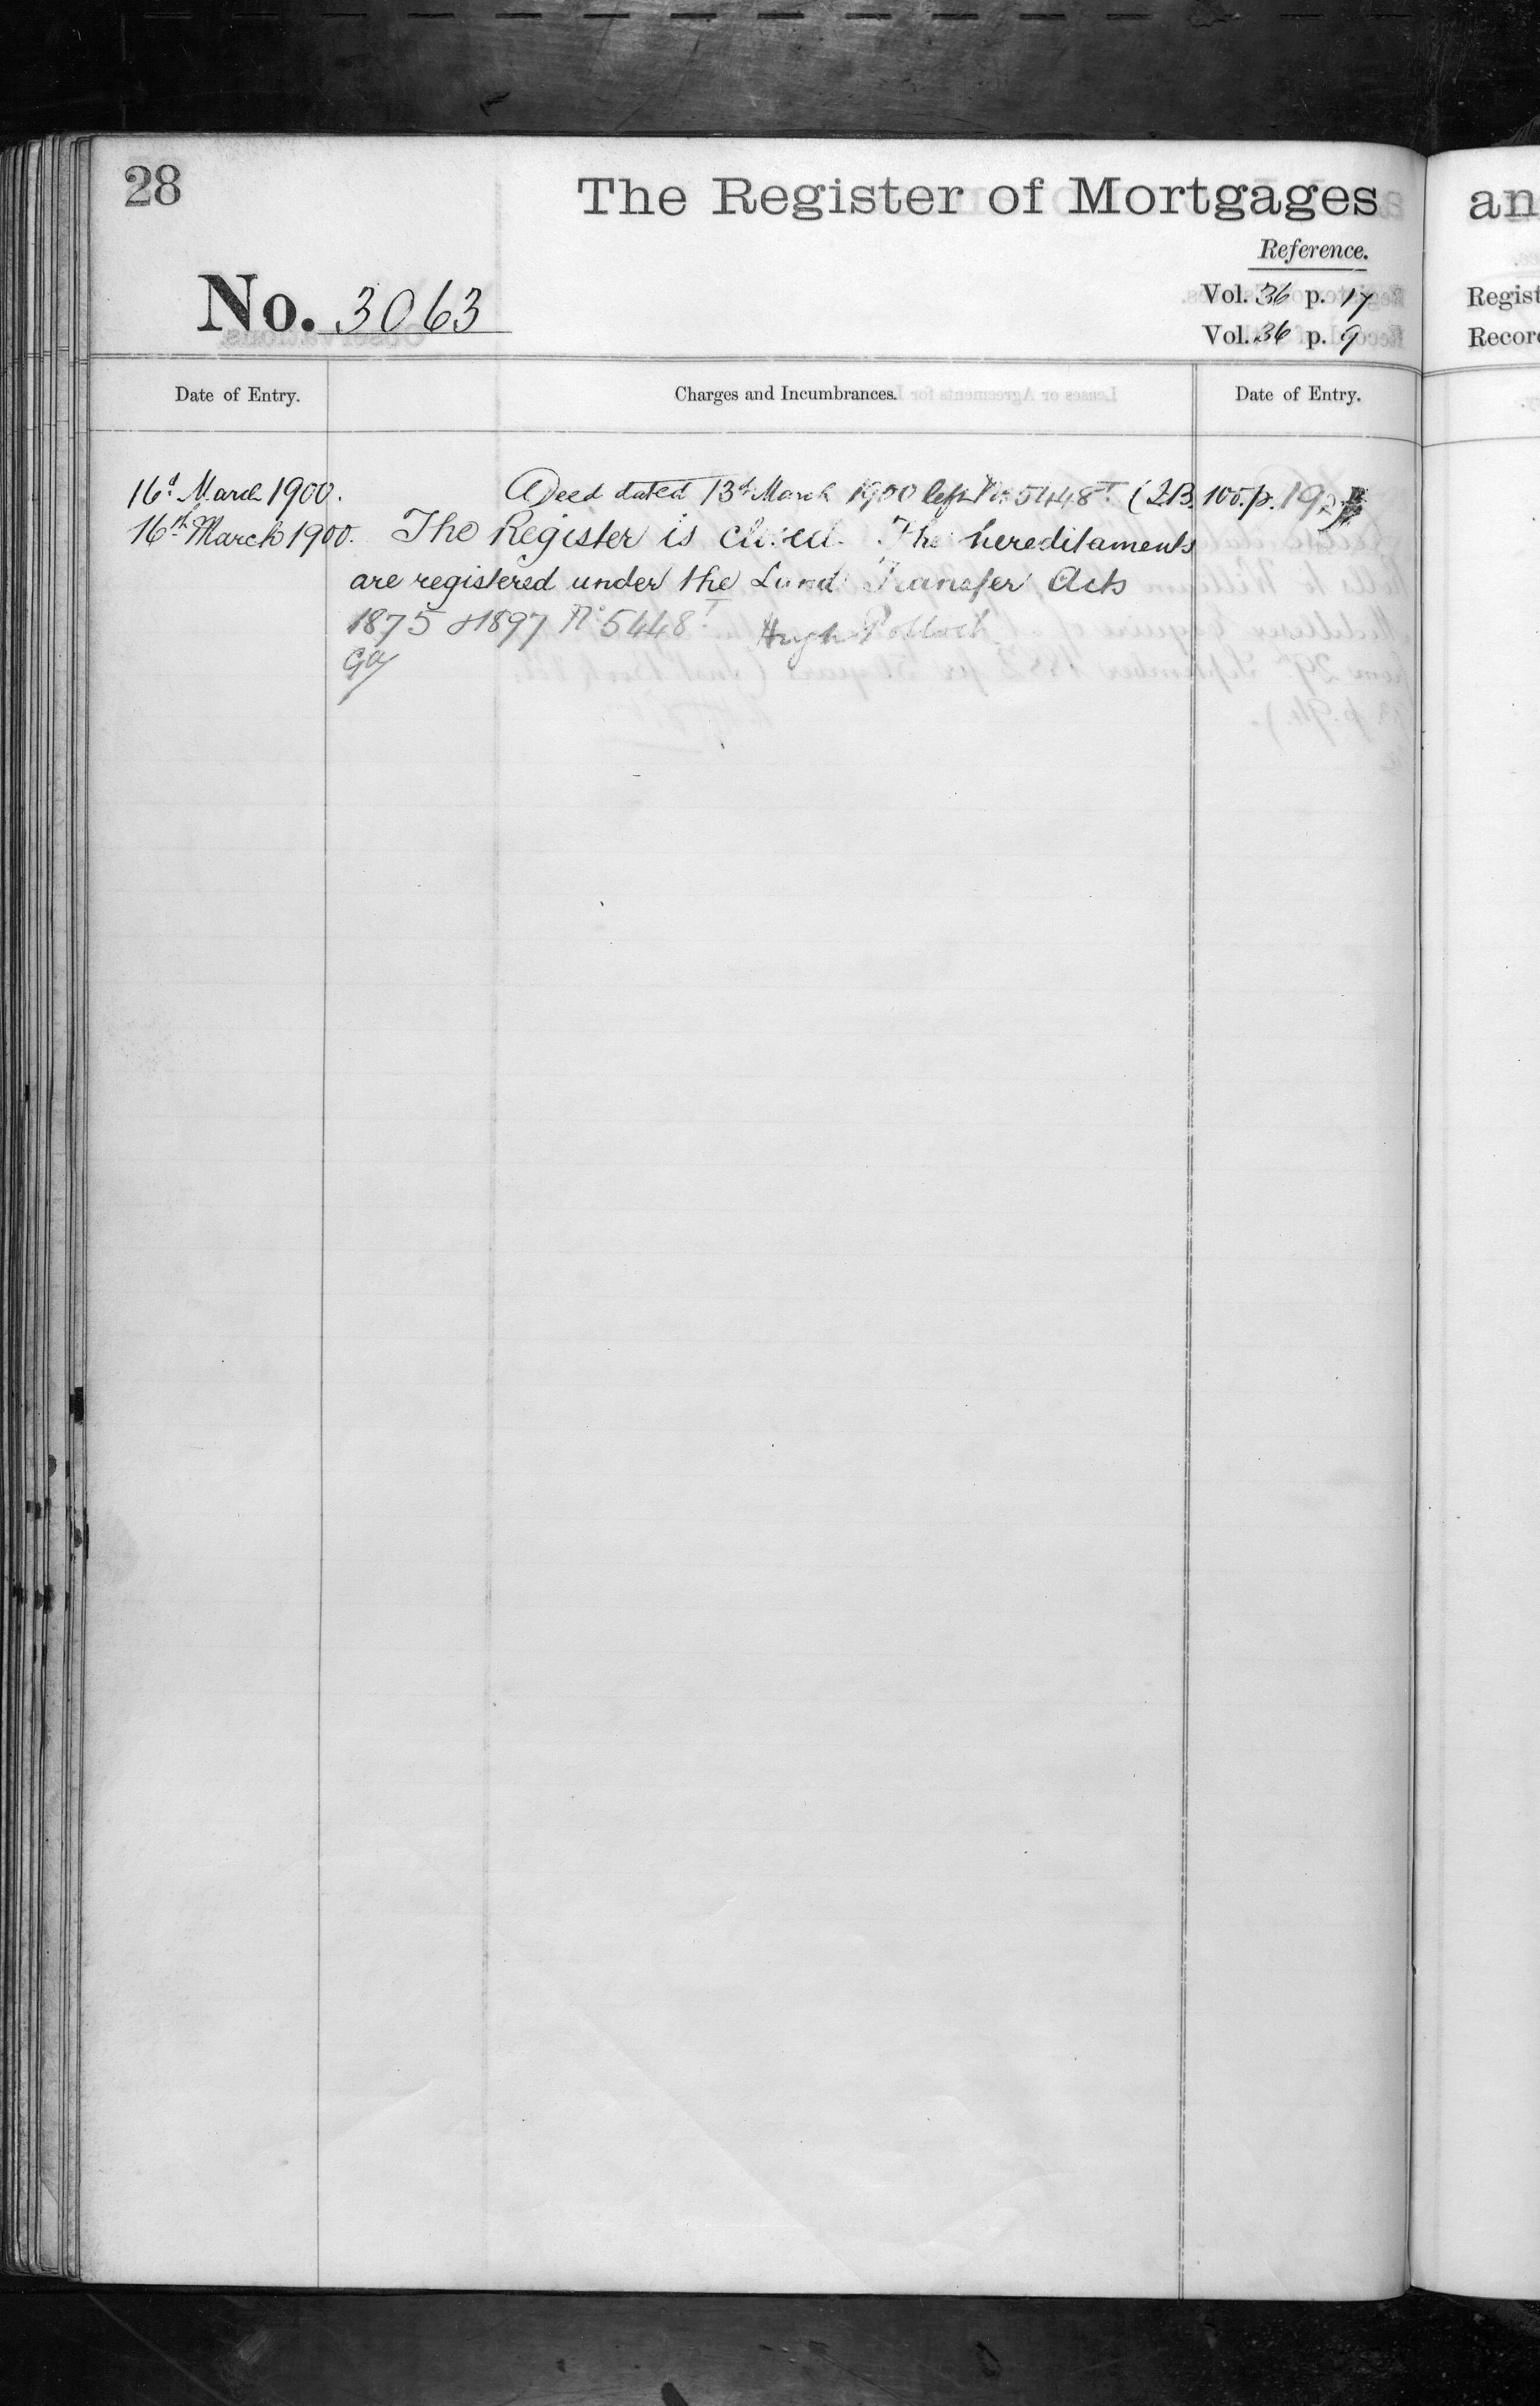 28
The Register of Mortgages
an
Reference.
No. 3063
Vol. 36 p. 17
Regist
Vol. 36 p. 9
Record
Date of Entry.
Charges and Incumbrances.
Date of Entry.
16th March 1900.
A Deed dated 13th March 1900 left No 5448 T (I.B. 100. p. 192)
16th March 1900.
The Register is closed. The hereditaments
are registered under the Land Transfer Acts
1875 & 1897 No 5448 T Hugh Pollock